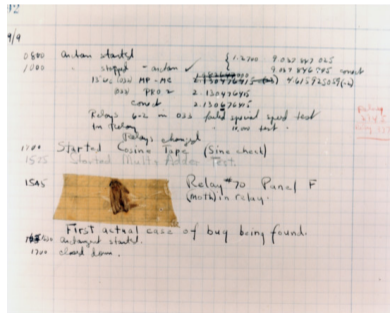 9/9
0800 Antan started
1000 " stopped - antan ✓ { 1.2700 9.037 847 025
9.037 846 995 correct
13"uc (032) MP - MC 2.130476415 (-2) 4.615925059 (-2)
033 PRO 2 2.130476415
correct 2.130676415
Relays 6-2 in 033 failed special speed test
in relay " 10.000 test.
Relays changed
1100 Started Cosine Tape (Sine check)
1525 Started Multi+Adder Test.
1545 Relay #70 Panel F
(moth) in relay.
First actual case of bug being found.
1630 antangent started.
1700 closed down.